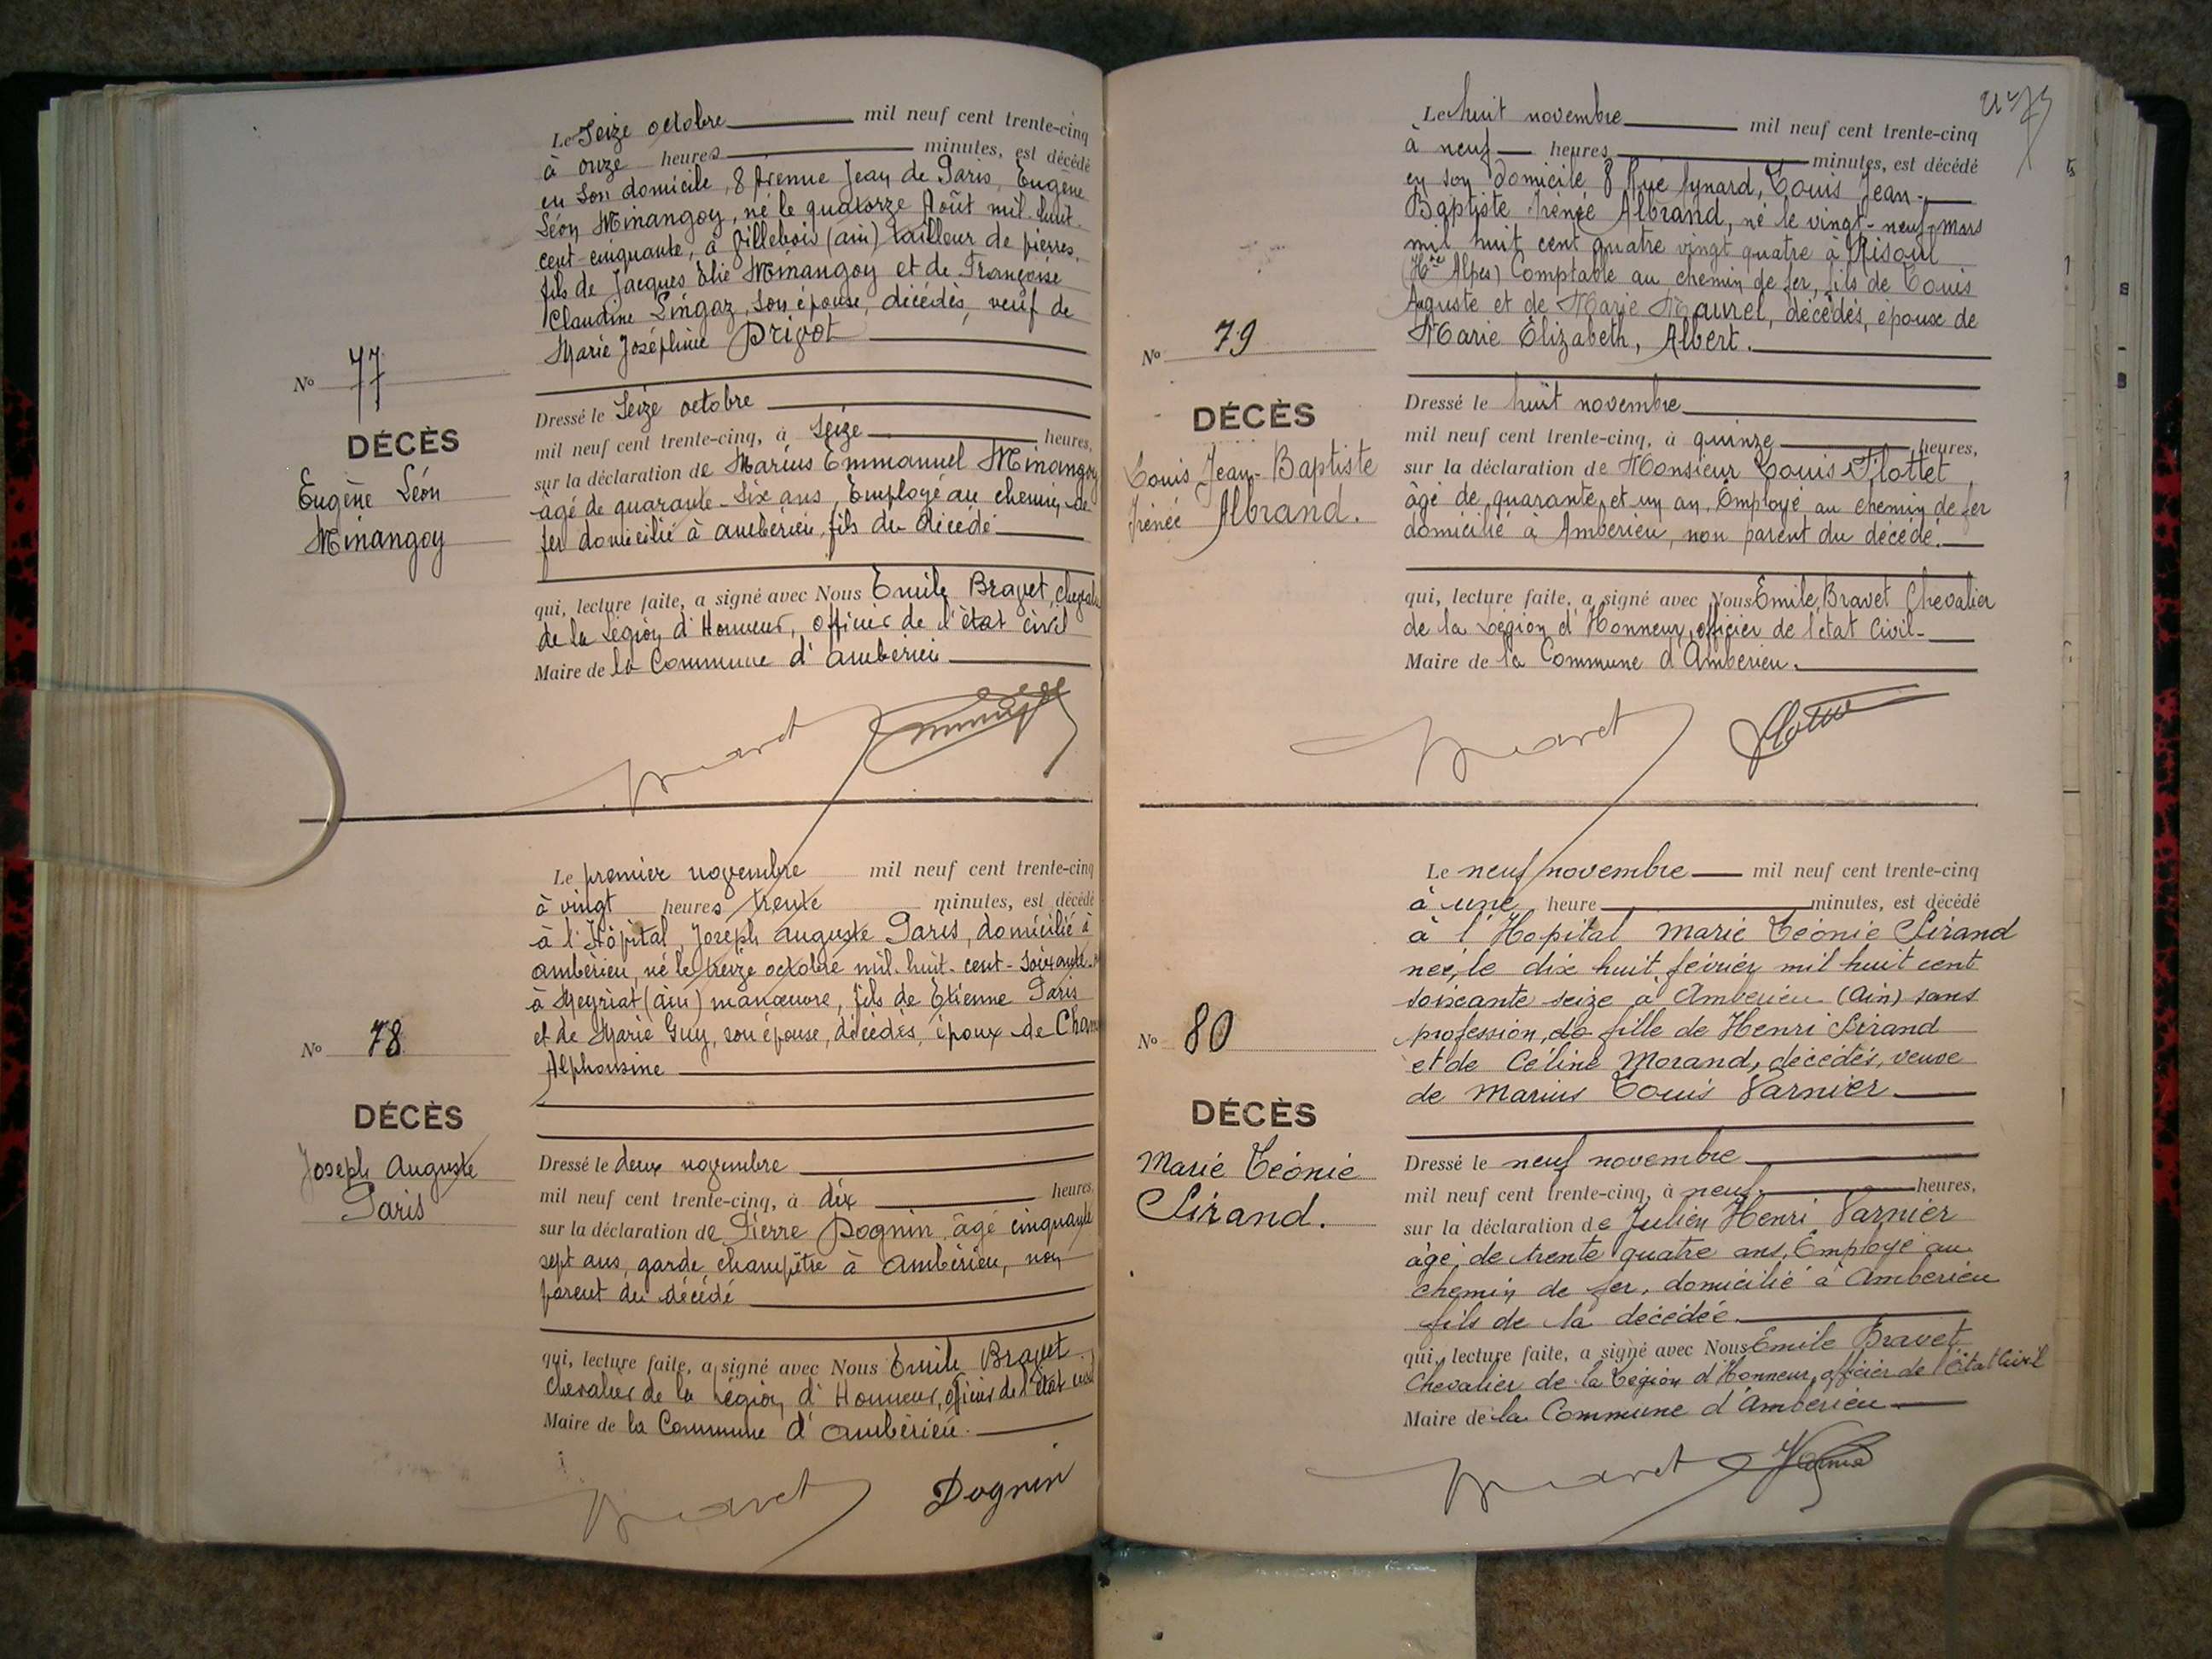 Le Seize octobre mil neuf cent trente-cinq
à onze heures minutes, est décédé
en son domicile, 8 Avenue Jean de Paris, Eugène
Léon Minangoy, né le quatorze Août mil-huit-
cent-cinquante, à Villebois (ain) tailleur de pierres,
fils de Jacques Elie Minangoy et de Françoise
Claudine Lingaz, son épouse, décédés, veuf de
Marie Joséphine Drigot
No 77
DÉCÈS
Eugène Léon
Minangoy
Dressé le Seize octobre
mil neuf cent trente-cinq, à Seize heures,
sur la déclaration de Marius Emmanuel Minangoy
âgé de quarante-six ans, Employé au chemin de
fer domicilié à ambérieu, fils du décédé
qui, lecture faite, a signé avec Nous Emile Bravet, cheval
de la Légion d'Honneur, officier de l'état civil
Maire de la Commune d'ambérieu
Le premier novembre mil neuf cent trente-cinq
à vingt heures trente minutes, est décédé
à l'Hôpital, Joseph Auguste Paris, domicilié à
ambérieu, né le treize octobre mil-huit-cent-soixante-
à Meyriat (ain) manœuvre, fils de Etienne Paris
et de Marie Guy, son épouse, décédés, époux de
Alphonsine
No 78
DÉCÈS
Joseph Auguste
Paris
Dressé le deux novembre
mil neuf cent trente-cinq, à dix heures,
sur la déclaration de Pierre Dognin âgé cinquante
sept ans, garde champêtre à ambérieu, non
parent du décédé
qui, lecture faite, a signé avec Nous Emile Bravet
chevalier de la Légion d'Honneur, officier de l'état civil
Maire de la Commune d'ambérieu.
Bravet Dognin
Le huit novembre mil neuf cent trente-cinq
à neuf heures minutes, est décédé
en son domicile 8 Rue Aynard, Louis Jean-
Baptiste Irénée Albrand, né le vingt-neuf mars
mil huit cent quatre vingt quatre à Risoul
(Htes Alpes) Comptable au chemin de fer, fils de Louis
Auguste et de Marie Maurel, décédés, époux de
Marie Elizabeth, Albert.
No 79
DÉCÈS
Louis Jean-Baptiste
Irénée Albrand.
Dressé le huit novembre
mil neuf cent trente-cinq, à quinze heures,
sur la déclaration de Monsieur Louis Flottet,
âgé de quarante et un an, Employé au chemin de fer
domicilié à Ambérieu, non parent du décédé.
qui, lecture faite, a signé avec Nous Emile Bravet Chevalier
de la Légion d'Honneur, officier de l'état Civil-
Maire de la Commune d'Ambérieu.
Bravet
Le neuf novembre mil neuf cent trente-cinq
à une heure minutes, est décédé
à l'Hopital Marie Léonie Sirand
née, le dix huit février mil huit cent
soixante seize à Ambérieu (Ain) sans
profession, de fille de Henri Sirand
et de Céline Morand, décédés, veuve
de Marius Louis Varnier
No 80
DÉCÈS
Marie Léonie
Sirand.
Dressé le neuf novembre
mil neuf cent trente-cinq, à neuf heures,
sur la déclaration de Julien Henri Varnier
âgé de trente quatre ans, Employé au
chemin de fer, domicilié à Ambérieu
fils de la décédée
qui, lecture faite, a signé avec Nous Emile Bravet
Chevalier de la Légion d'Honneur, officier de l'état Civil
Maire de la Commune d'Ambérieu
Bravet